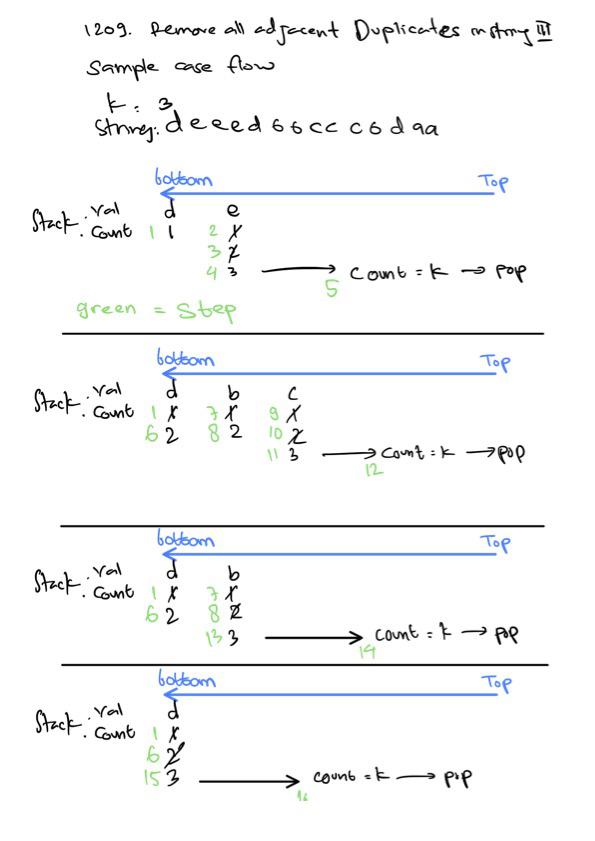 1209. Remove all adjacent Duplicates in string III
Sample case flow
k : 3
String: d e e e d b b c c c b d a a
bottom Top
Stack : Val d e
: Count 1 1 2 1
3 2
4 3 → Count = k → pop
5
green = Step
bottom Top
Stack : Val d b c
: Count 1 1 7 1 9 1
6 2 8 2 10 2
11 3 → Count = k → pop
12
bottom Top
Stack : Val d b
: Count 1 1 7 1
6 2 8 2
13 3 → Count = k → pop
14
bottom Top
Stack : Val d
: Count 1 1
6 2
15 3 → count = k → pop
16